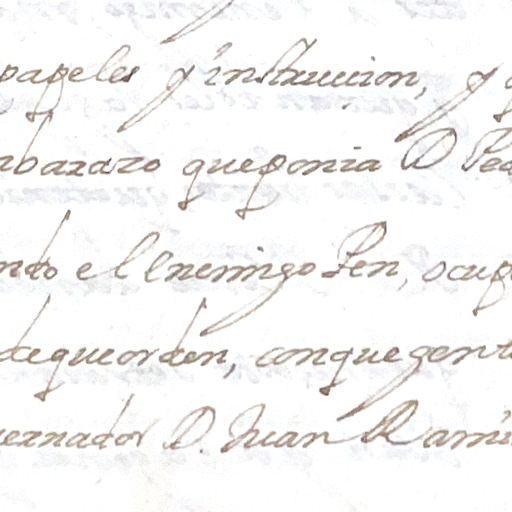 papeles y instruccion, y
mbarazo que ponia D Ped
ndo el Enemigo Pen, ocup
de que orden, con que gente
vernador D. Juan Ramir